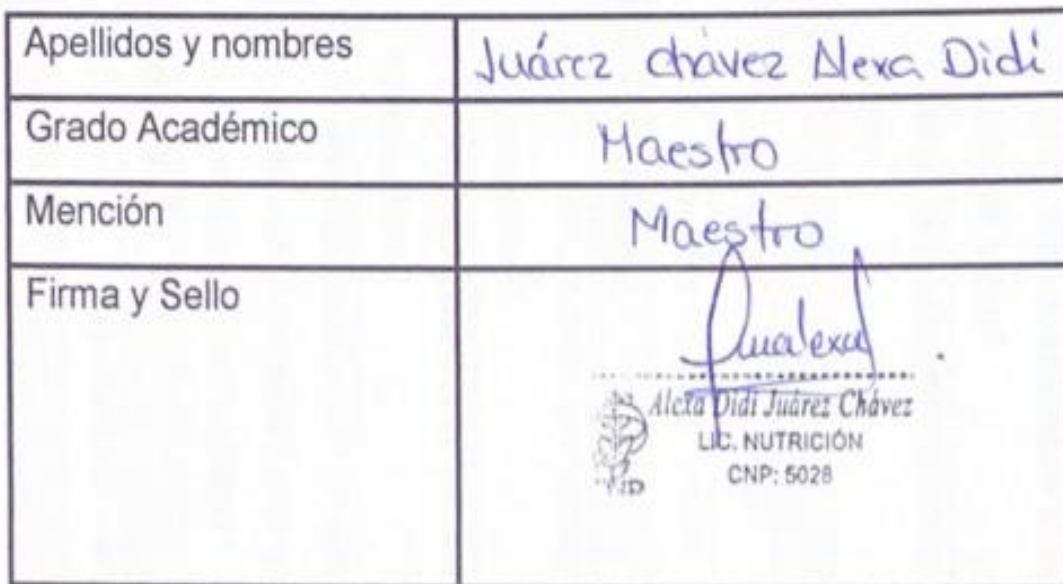 Apellidos y nombres Juárez chávez Alexa Didi
Grado Académico Maestro
Mención Maestro
Firma y Sello
Alexa Didi Juárez Chávez
LIC. NUTRICIÓN
CNP: 5028